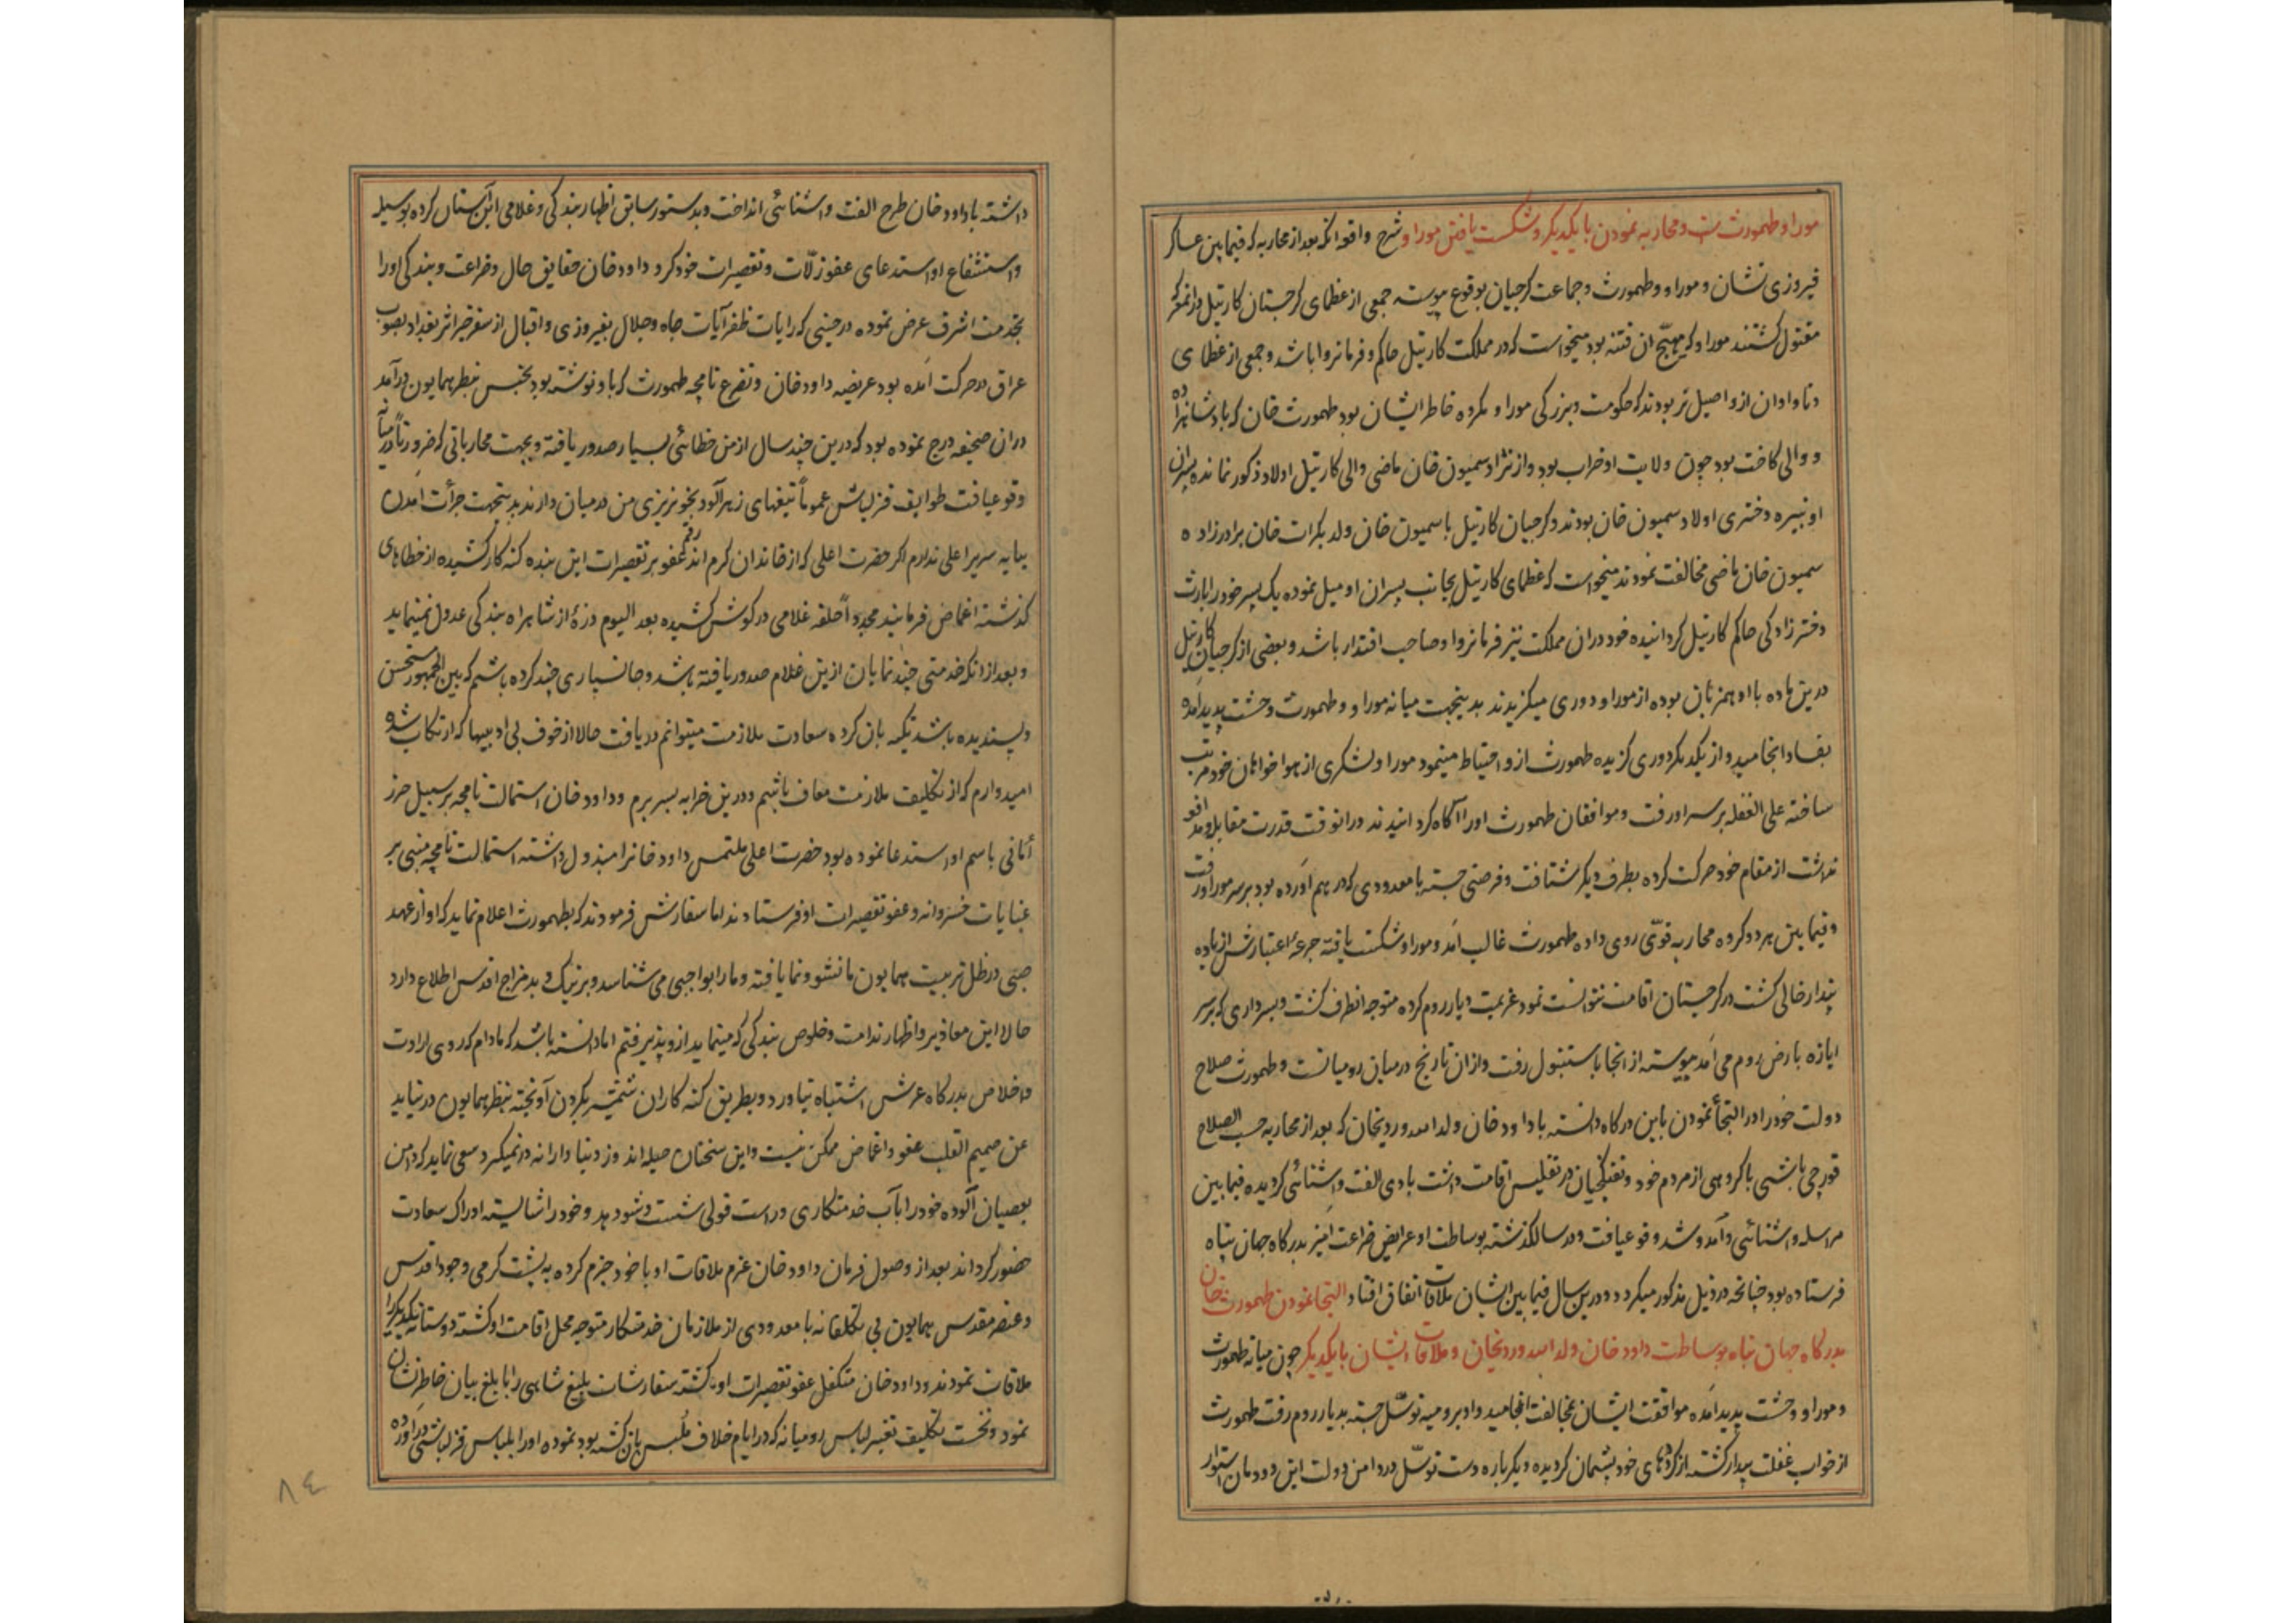 موراو و طهمورث است و محاربه نمودن با یکدیگر و شکست یافتن موراو و شرح واقعه آنکه بعد از محاربه که فیمابین عساکر
فیروزی نشان و موراو و طهمورث و جماعت کرجیان بوقوع پیوسته جمعی از عظمای کرجستان کارتیل در آنمعرکه
مقتول کشتند موراو که مهیّج ان فتنه بود میخواست که در مملکت کارتیل حاکم و فرمانروا باشد و جمعی از عظمای
و تاوادان ازو اصیل تر بودند که حکومت و بزرکی موراو مکروه خاطر ایشان بود طهمورث خان که پادشاهزاده
و والی کاخت بود چون ولایت او خراب بود و از نژاد سمیون خان ماضی والی کارتیل اولاد ذکور نمانده پسران
او نبیره دختری اولاد سمیون خان بودند و کرجیان کارتیل با سمیون خان ولد بکرات خان برادرزاده
سمیون خان ماضی مخالفت نمودند میخواست که عظمای کارتیل بجانب پسران او میل نموده یک پسر خود را بارث
دخترزادکی حاکم کارتیل کردانیده خود در ان مملکت نیز فرمانروا و صاحب اقتدار باشد و بعضی از کرجیان کارتیل
درین ماده با او همزبان بوده از موراو دوری میکزیدند بدینجهت میانه موراو و طهمورث وحشت پدید آمده
بفساد انجامید و از یکدیکر دوری کزیده طهمورث ازو احتیاط مینمود موراو لشکری از هواخواهان خود مرتب
ساخته علی الغفله بر سر او رفت و موافقان طهمورث او را آکاه کردانیدند در انوقت قدرت مقابله و مدافعه
نداشت از مقام خود حرکت کرده بطرف دیکر شتافت و فرصتی جسته با معدودی که در بهم آورده بود بر سر موراو رفت
و فیمابین هر دو کروه محاربه قوّی روی داده طهمورث غالب آمد و موراو شکست یافته جرعهٔ اعتبارش از باده
پندار خالی کشت در کرجستان اقامت نتوانست نمود عزیمت دیار روم کرده متوجه انطرف کشت و بسرداری که بر سر
ابازه بارض روم می آمد پیوسته از انجا باستنبول رفت و از ان تاریخ در میان رومیانست و طهمورث صلاح
دولت خود را در التجأ نمودن باین درکاه دانسته با داود خان ولد الله ویردیخان که بعد از محاربه حسب الصلاح
قورچی باشی با کروهی از مردم خود و تفنکچیان در تفلیس اقامت داشت بادی الفت و اشنائی کردیده فیمابین
مراسله و اشنائی و آمد و شد وقوع یافت و در سال کذشته بوساطت او عرایض ضراعت امیز بدرکاه جهان پناه
فرستاده بود چنانچه در ذیل مذکور میکردد و درین سال فیمابین ایشان ملاقات اتفاق افتاد التجا نمودن طهمورث خان
بدرکاه جهان پناه بوساطت داود خان ولد الله ویردیخان و ملاقات ایشان با یکدیکر چون میانه طهمورث
و موراو وحشت پدید آمده موافقت ایشان بمخالفت انجامید و او برومیه توسّل جسته بدیار روم رفت طهمورث
از خواب غفلت بیدار کشته از کردهای خود پشیمان کردیده دیکرباره دست توسّل در دامن دولت این دودمان استوار
داشته با داود خان طرح الفت و اشنائی انداخت و بدستور سابق اظهار بندکی و غلامی این آستان کرده بوسیله
و استشفاع او استدعای عفو زلّات و تقصیرات خود کرد داود خان حقایق حال و ضراعت و بندکی او را
بخدمت اشرف عرض نموده در حینی که رایات ظفرآیات جاه و جلال بفیروزی و اقبال از سفر خیر اثر بغداد بصوب
عراق در حرکت آمده بود عریضه داود خان و تضرع نامچه طهمورث که باو نوشته بود بجنس بنظر همایون درآمد
در ان صحیفه درج نموده بود که درین چند سال از من خطائی بسیار صدور یافته و بجهت محارباتی که ضرورتاً در میانه
وقوع یافت طوایف قزلباش عموماً تیغهای زهرآلود بخونریزی من در میان دارند بدینجهت جرأت آمدن
بپایه سریر اعلی ندارم اکر حضرت اعلی که از خاندان کرم اند رقم عفو بر تقصیرات این بنده کنه کار کشیده از خطاهای
کذشته اغماض فرمایند مجدداً حلقه غلامی در کوش کشیده بعد الیوم ذرهٔ از شاهراه بندکی عدول نمینماید
و بعد از انکه خدمتی چند نمایان ازین غلام صدور یافته باشد و جانسپاری چند کرده باشم که بین الجمهور مستحسن
و پسندیده باشد تکیه بان کرده سعادت ملازمت میتوانم دریافت حالا از خوف بی ادبیها که ارتکاب شده
امیدوارم که از تکلیف ملازمت معاف باشم و درین خرابه بسر برم و داود خان استمالت نامچه بر سبیل حرز
أمانی باسم او استدعا نموده بود حضرت اعلی ملتمس داود خانرا مبذول داشته استمالت نامچه مبنی بر
عنایات خسروانه و عفو تقصیرات او فرستادند اما سفارش فرمودند که بطهمورث اعلام نماید که او از عهد
صبی در ظل تربیت همایون ما نشو و نما یافته و ما را بواجبی می شناسد و بر نیک و بد مزاج اقدس اطلاع دارد
حالا این معاذیر و اظهار ندامت و خلوص بندکی که مینماید ازو پذیرفتم اما دانسته باشد که مادام که روی ارادت
و اخلاص بدرکاه عرش اشتباه نیاورد و بطریق کنه کاران شمشیر بکردن آویخته بنظر همایون درنیاید
عن صمیم القلب عفو و اغماض ممکن نیست و این سخنان حیله اندوز دنیا دارانه درنمیکیرد سعی نماید که دامن
بعصیان آلوده خود را بآب خدمتکاری و راست قولی شست و شو دهد و خود را شایسته ادراک سعادت
حضور کرداند بعد از وصول فرمان داود خان عزم ملاقات او با خود جزم کرده به پشت کرمی وجود اقدس
و عنصر مقدس همایون بی تکلفانه با معدودی از ملازمان خدمتکار متوجه محل اقامت او کشته دوستانه یکدیکر را
ملاقات نمودند و داود خان متکفل عفو تقصیرات او کشته سفارشات بلیغ شاهی را بابلغ بیان خاطرنشان
نمود و نخست تکلیف تغییر لباس رومیانه که در ایام خلاف مُلبس بان کشته بود نموده او را بلباس قزلباشی در آورده
٨٤